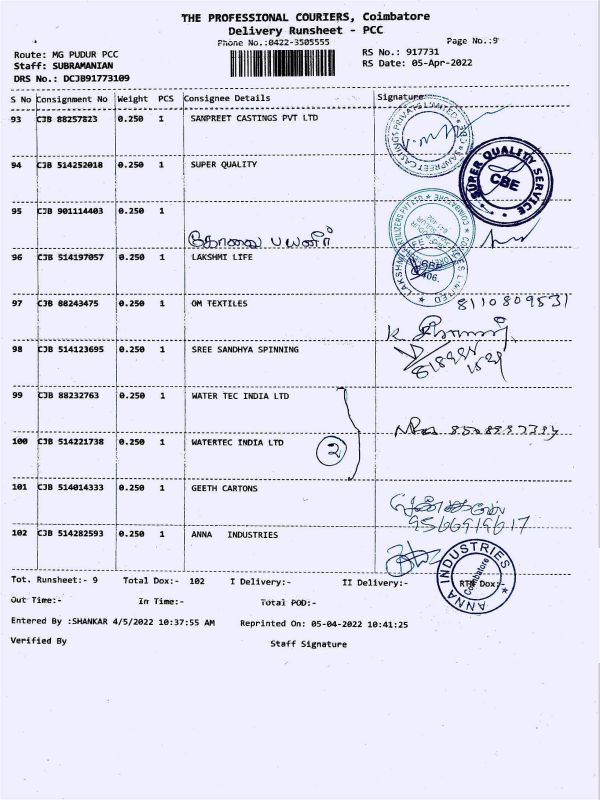 THE PROFESSIONAL COURIERS, Coimbatore
Delivery Runsheet - PCC
Phone No.:0422-3505555
Page No.:9
Route: MG PUDUR PCC
RS No.: 917731
Staff: SUBRAMANIAN
RS Date: 05-Apr-2022
DRS No.: DCJB91773109
S No Consignment No Weight PCS Consignee Details Signature
93 CJB 88257823 0.250 1 SANPREET CASTINGS PVT LTD
94 CJB 514252018 0.250 1 SUPER QUALITY
SUPER QUALITY SERVICE
CBE
95 CJB 901114403 0.250 1
கோவை பயனீர்
96 CJB 514197057 0.250 1 LAKSHMI LIFE
97 CJB 88243475 0.250 1 OM TEXTILES
8110809531
98 CJB 514123695 0.250 1 SREE SANDHYA SPINNING
99 CJB 88232763 0.250 1 WATER TEC INDIA LTD
100 CJB 514221738 0.250 1 WATERTEC INDIA LTD
2
101 CJB 514014333 0.250 1 GEETH CARTONS
9566919617
102 CJB 514282593 0.250 1 ANNA INDUSTRIES
ANNA INDUSTRIES
Coimbatore
Tot. Runsheet:- 9 Total Dox:- 102 I Delivery:- II Delivery:- RTN Dox:-
Out Time:- In Time:- Total POD:-
Entered By :SHANKAR 4/5/2022 10:37:55 AM Reprinted On: 05-04-2022 10:41:25
Verified By Staff Signature